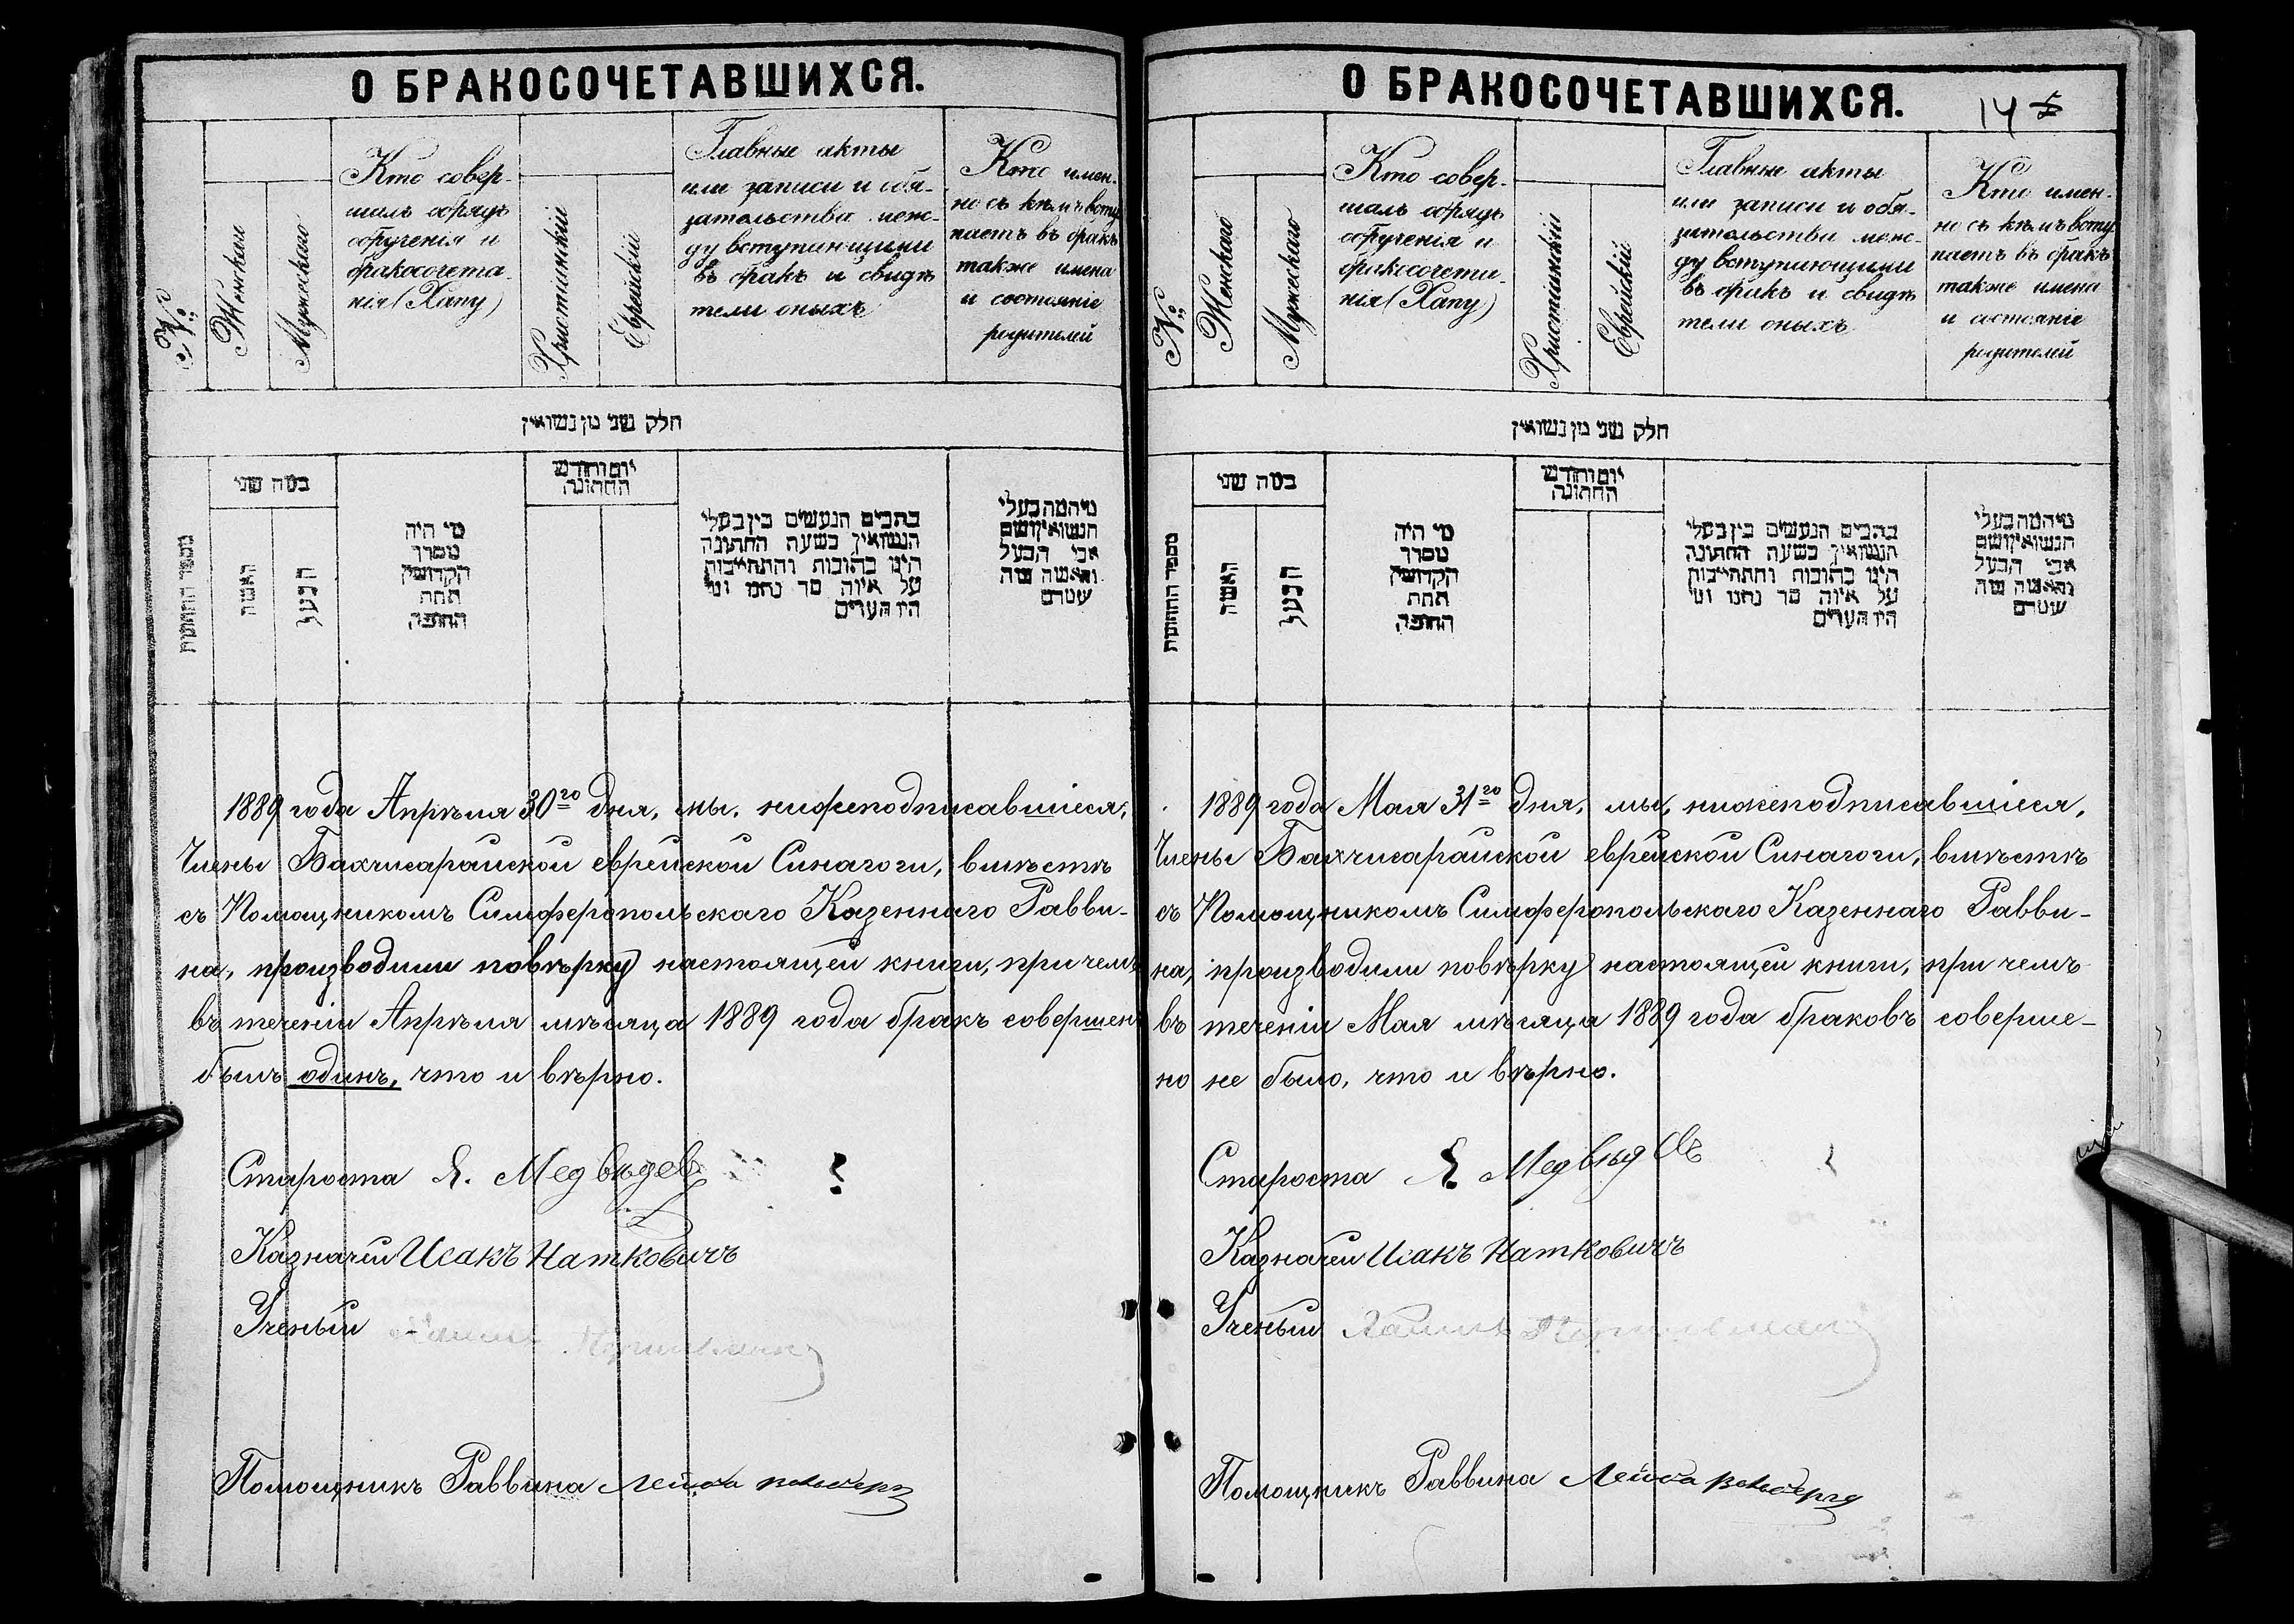 О БРАКОСОЧЕТАВШИХСЯ.
№
Женскаго
Мужескаго
Кто совер-
шалъ обрядъ
обрученія и
бракосочета-
нія (Хапу)
Христіанскій
Еврейскій
Главные акты
или записи и обя-
зательства меж-
ду вступающими
въ бракъ и свидѣ
тели оныхъ
Кто имен-
но съ кѣмъ всту
паетъ въ бракъ
также имена
и состояніе
родителей
חלק שני מן נשואין
מספר החתונות
כמה שני
האשה
הבעל
מי היה
מסדר
הקדושין
תחת
החופה
יום וחודש
החתונה
כתבים הנעשים בין בעלי
הנשואין בשעת החתונה
היינו כתובות והתחייבות
על איזה סך נתנו ומי
היו העדים
מי המה בעלי
הנשואין ושם
אבי הבעל
והאשה ומה
1889 года Апрѣля 30го дня, мы, нижеподписавшіеся,
Члены Бахчисарайской еврейской Синагоги, вмѣстѣ
съ Помощникомъ Симферопольскаго Казеннаго Равви-
на, производили повѣрку настоящей книги, при чемъ
въ теченіи Апрѣля мѣсяца 1889 года бракъ совершенъ
былъ одинъ, что и вѣрно.
Староста Я. Медвѣдевъ
Казначей Исакъ Наткович
Ученый
Помощникъ Раввина Лейба Вольберг
О БРАКОСОЧЕТАВШИХСЯ.
14
№
Женскаго
Мужескаго
Кто совер-
шалъ обрядъ
обрученія и
бракосочета-
нія (Хапу)
Христіанскій
Еврейскій
Главные акты
или записи и обя-
зательства меж-
ду вступающими
въ бракъ и свидѣ
тели оныхъ
Кто имен-
но съ кѣмъ всту
паетъ въ бракъ
также имена
и состояніе
родителей
חלק שני מן נשואין
מספר החתונות
כמה שני
האשה
הבעל
מי היה
מסדר
הקדושין
תחת
החופה
יום וחודש
החתונה
כתבים הנעשים בין בעלי
הנשואין בשעת החתונה
היינו כתובות והתחייבות
על איזה סך נתנו ומי
היו העדים
מי המה בעלי
הנשואין ושם
אבי הבעל
והאשה ומה
1889 года Мая 31го дня, мы, нижеподписавшіеся,
Члены Бахчисарайской еврейской Синагоги, вмѣстѣ
съ Помощникомъ Симферопольскаго Казеннаго Равви-
на, производили повѣрку настоящей книги, при чемъ
въ теченіи Мая мѣсяца 1889 года браковъ соверше-
но не было, что и вѣрно.
Староста Я Медвѣдевъ
Казначей Исакъ Наткович
Ученый Хаимъ
Помощникъ Раввина Лейба Вольберг